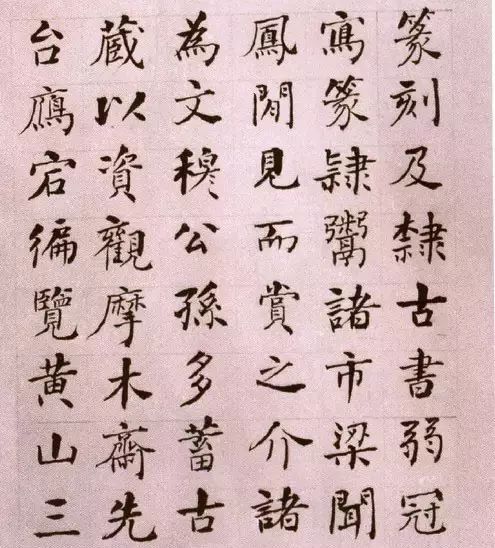 篆刻及隸古書弱冠
寫篆隸鬻諸市梁聞
鳳閒見而賞之介諸
為文穆公孫多蓄古
藏以資觀摩木齋先
台鴈宕徧覽黃山三